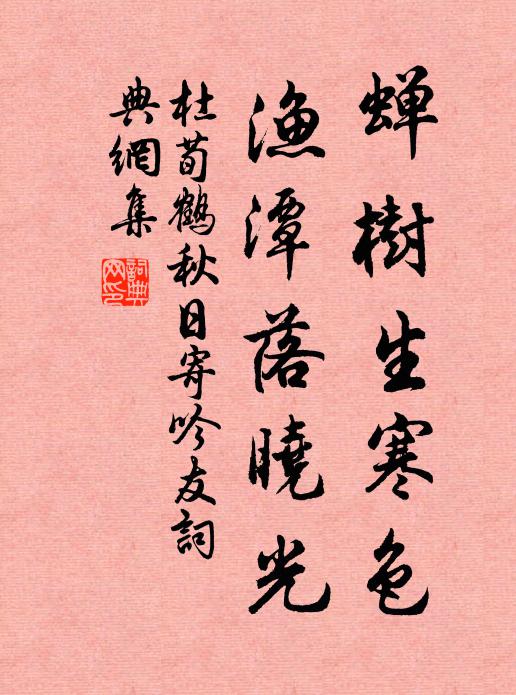 蝉樹生寒色
漁潭落曉光
杜荀鶴秋日寄吟友詞
典網集
詞典網印